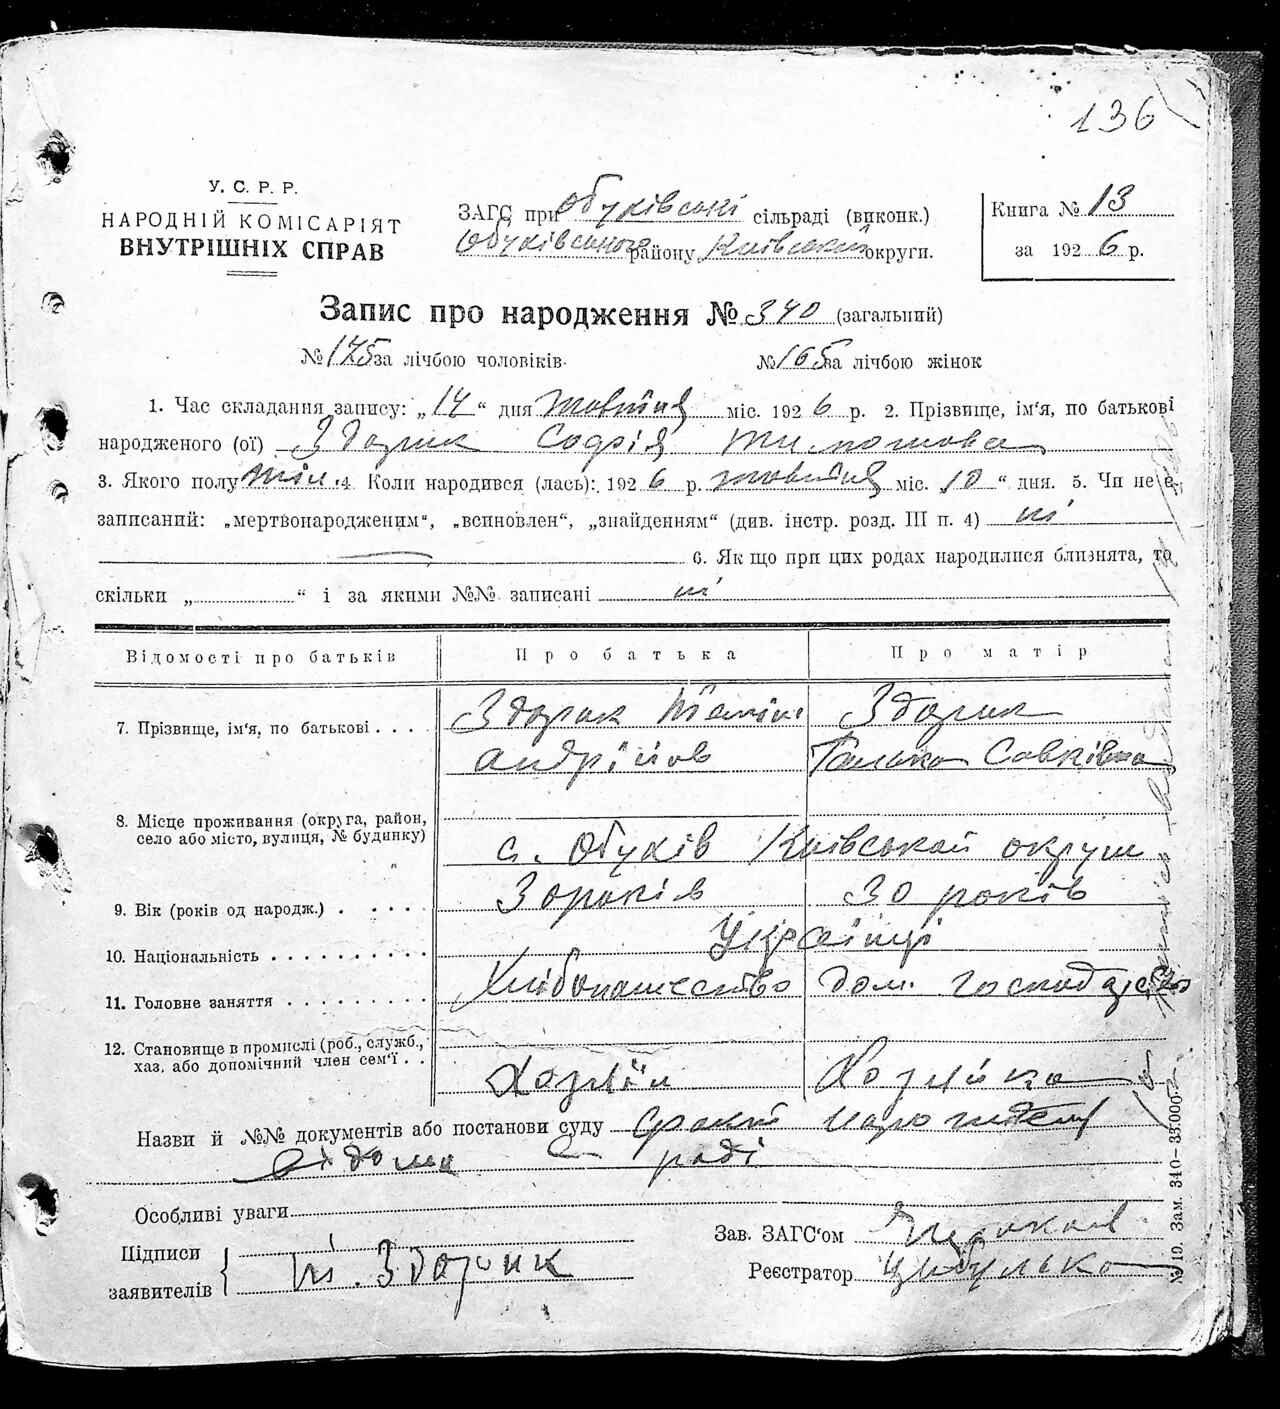 136
У. С. Р. Р.
НАРОДНІЙ КОМІСАРІЯТ
ВНУТРІШНІХ СПРАВ
ЗАГС при Обухівські сільраді (виконк.)
Обухівського району, Київський округи.
Книга № 13
за 1926 р.
Запис про народження № 340 (загальний)
№ 175 за лічбою чоловіків.
№ 165 за лічбою жінок
1. Час складання запису: „14“ дня жовтня міс. 1926 р. 2. Прізвище, ім'я, по батькові
народженого (ої) Здорик Софія Тимошова
3. Якого полу жін. 4. Коли народився (лась): 1926 р. жовтня міс. „10“ дня. 5. Чи не є
записаний: „мертвонародженим“, „всиновлен“, „знайденням“ (див. інстр. розд. III п. 4) ні
6. Як що при цих родах народилися близнята, то
скільки „ “ і за якими №№ записані ні
Відомості про батьків
Про батька
Про матір
7. Прізвище, ім'я, по батькові . . . .
Здорик
Здорик
Андрійов
Савківна
8. Місце проживання (округа, район,
село або місто, вулиця, № будинку)
с. Обухів Київськой округи
9. Вік (років од народж.) . . . . .
30 років
30 років
10. Національність . . . . . . . . . .
Українці
11. Головне заняття . . . . . . . .
Хлібопашество
дом. господарство
12. Становище в промислі (роб., служб.,
хаз. або допомічний член сем'ї . .
Хозяїн
Хозяйка
Назви й №№ документів або постанови суду
відома раді
Особливі уваги
Підписи
заявителів
Здорик
Зав. ЗАГС'ом
Реєстратор Цибулько
№ 19. Зам. 340—35.000